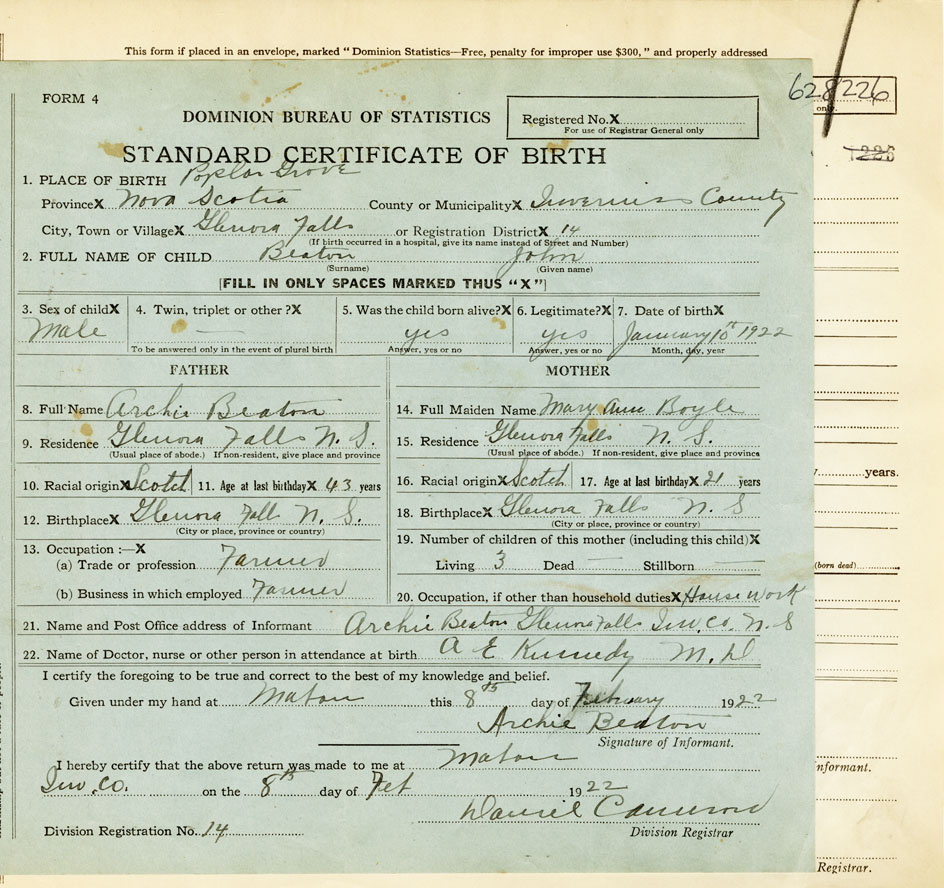 This form if placed in an envelope, marked "Dominion Statistics—Free, penalty for improper use $300," and properly addressed
628226
FORM 4
only.
DOMINION BUREAU OF STATISTICS
Registered No.X
For use of Registrar General only
STANDARD CERTIFICATE OF BIRTH
1226
1. PLACE OF BIRTH Poplar Grove
ProvinceX Nova Scotia County or MunicipalityX Inverness County
City, Town or VillageX Glenora Falls or Registration DistrictX 14
(If birth occurred in a hospital, give its name instead of Street and Number)
2. FULL NAME OF CHILD Beaton John
(Surname) (Given name)
[FILL IN ONLY SPACES MARKED THUS "X"]
3. Sex of childX 4. Twin, triplet or other ?X 5. Was the child born alive?X 6. Legitimate?X 7. Date of birthX
Male — yes yes January 10th 1922
To be answered only in the event of plural birth Answer, yes or no Answer, yes or no Month, day, year
FATHER MOTHER
8. Full Name Archie Beaton 14. Full Maiden Name Mary Ann Boyle
9. Residence Glenora Falls N. S. 15. Residence Glenora Falls N. S.
(Usual place of abode.) If non-resident, give place and province (Usual place of abode.) If non-resident, give place and province
years.
10. Racial originX Scotch 11. Age at last birthdayX 43 years 16. Racial originX Scotch 17. Age at last birthdayX 21 years
12. BirthplaceX Glenora Fall N. S. 18. BirthplaceX Glenora Falls N. S
(City or place, province or country) (City or place, province or country)
13. Occupation :—X 19. Number of children of this mother (including this child)X
(a) Trade or profession Farmer Living 3 Dead — Stillborn —
(born dead)
(b) Business in which employed Farmer 20. Occupation, if other than household dutiesX House work
21. Name and Post Office address of Informant Archie Beaton Glenora Falls Inv. Co. N. S
22. Name of Doctor, nurse or other person in attendance at birth A E Kennedy M. D
I certify the foregoing to be true and correct to the best of my knowledge and belief.
Given under my hand at Mabou this 8th day of February 1922
Archie Beaton
Signature of Informant.
I hereby certify that the above return was made to me at Mabou
nformant.
Inv. Co. on the 8th day of Feb 1922
Daniel Cameron
Division Registration No. 14 Division Registrar
Registrar.